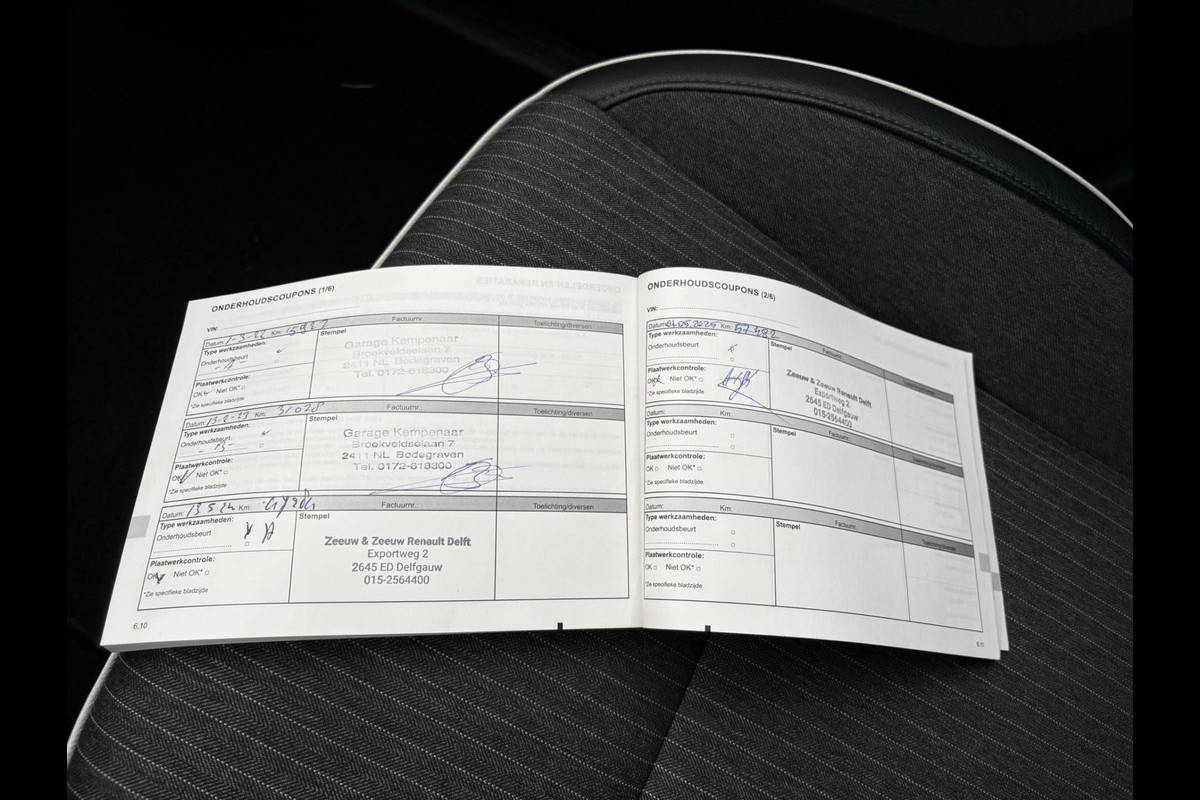 ONDERHOUDSCOUPONS (1/6)
VIN:
Datum: 1-3-22 Km:
Factuurnr.:
Toelichting/diversen
Type werkzaamheden:
Stempel
Onderhoudsbeurt
Garage Kempenaar
Broekveldselaan 7
2411 NL Bodegraven
Tel. 0172-618300
Plaatwerkcontrole:
OK Niet OK*
*Zie specifieke bladzijde
Datum: 13-2-23 Km: 31028
Factuurnr.:
Toelichting/diversen
Type werkzaamheden:
Stempel
Onderhoudsbeurt
- B -
Garage Kempenaar
Broekveldselaan 7
2411 NL Bodegraven
Tel. 0172-618300
Plaatwerkcontrole:
OK Niet OK*
*Zie specifieke bladzijde
Datum: 13 5 24 Km:
Factuurnr.:
Toelichting/diversen
Type werkzaamheden:
Stempel
Onderhoudsbeurt
A
Zeeuw & Zeeuw Renault Delft
Exportweg 2
2645 ED Delfgauw
015-2564400
Plaatwerkcontrole:
OK Niet OK*
*Zie specifieke bladzijde
6.10
ONDERHOUDSCOUPONS (2/6)
VIN:
Datum: 01.05.2025 Km: 57482
Factuurnr.:
Type werkzaamheden:
Stempel
Onderhoudsbeurt
Zeeuw & Zeeuw Renault Delft
Exportweg 2
2645 ED Delfgauw
015-2564400
Plaatwerkcontrole:
OK Niet OK*
*Zie specifieke bladzijde
Datum: Km:
Factuurnr.:
Toelichting/diversen
Type werkzaamheden:
Stempel
Onderhoudsbeurt
Plaatwerkcontrole:
OK Niet OK*
*Zie specifieke bladzijde
Datum: Km:
Factuurnr.:
Toelichting/diversen
Type werkzaamheden:
Stempel
Onderhoudsbeurt
Plaatwerkcontrole:
OK Niet OK*
*Zie specifieke bladzijde
6.11